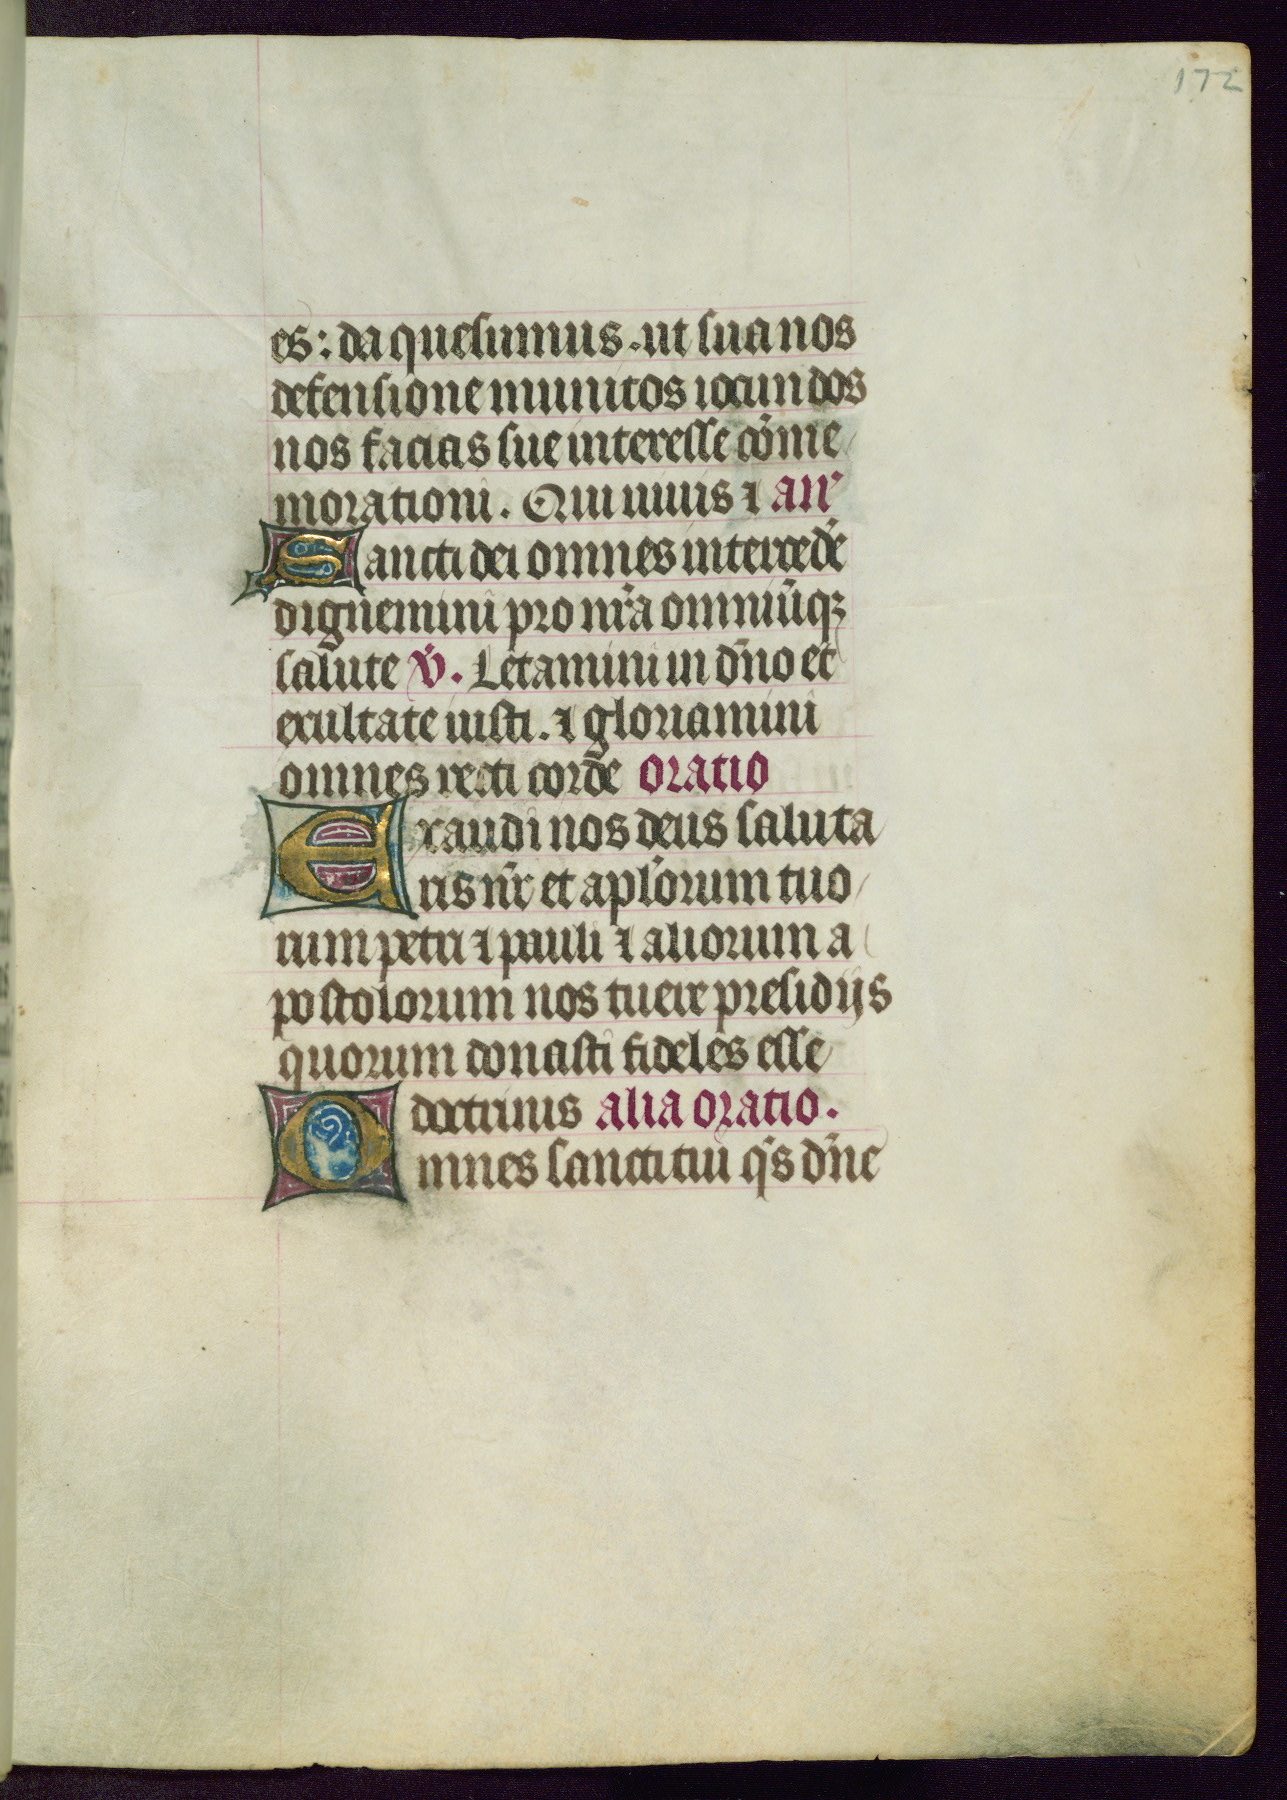 172
es: da quesumus. ut sua nos
defensione munitos iocundos
nos facias sue interesse cōme
morationi. Qui uiuis ⁊ añ
Sancti dei omnes intercedē
dignemini pro nr̄a omniūqꝫ
salute v̄. Letamini in dn̄o et
exultate iusti. ⁊ gloriamini
omnes recti corde oratio
Exaudi nos deus saluta
ris nr̄ et apl̄orum tuo
rum petri ⁊ pauli ⁊ aliorum a
postolorum nos tuere presidijs
quorum donasti fideles esse
doctrinis alia oratio.
Omnes sancti tui qs̄ dn̄e